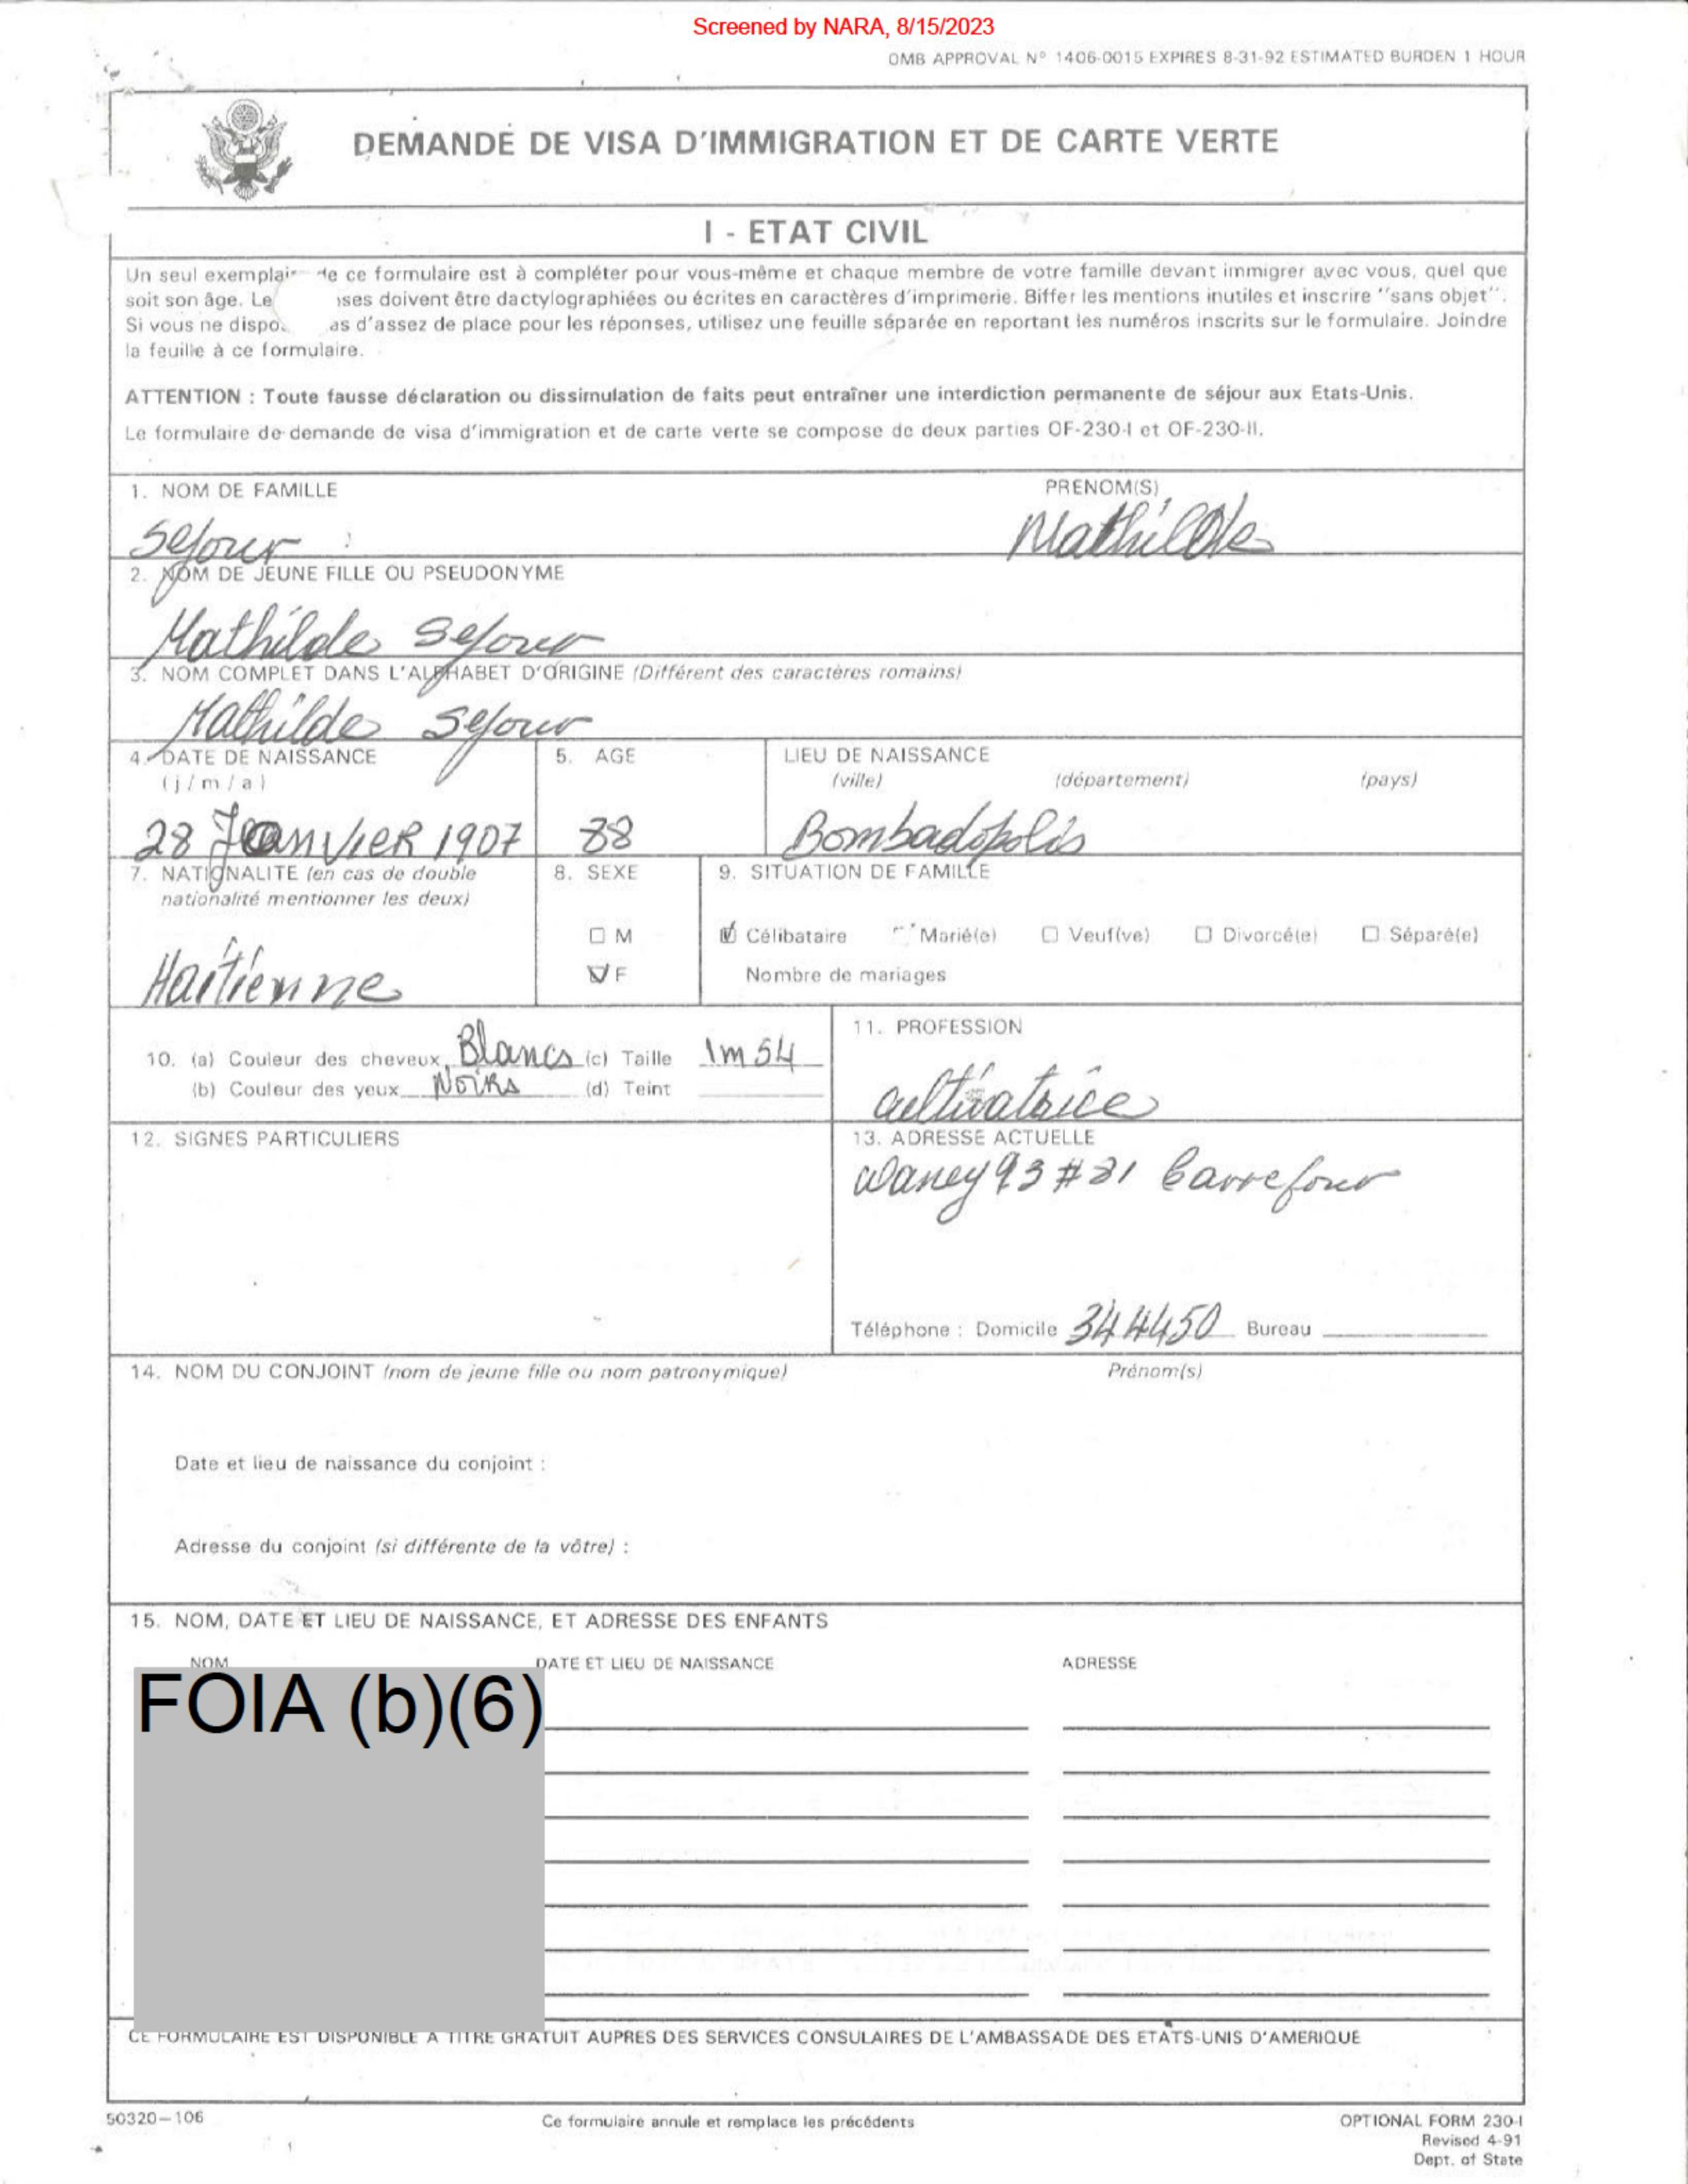 Screened by NARA, 8/15/2023
OMB APPROVAL N° 1406-0015 EXPIRES 8-31-92 ESTIMATED BURDEN 1 HOUR
DEMANDE DE VISA D'IMMIGRATION ET DE CARTE VERTE
I - ETAT CIVIL
Un seul exemplair de ce formulaire est à compléter pour vous-même et chaque membre de votre famille devant immigrer avec vous, quel que
soit son âge. Le ses doivent être dactylographiées ou écrites en caractères d'imprimerie. Biffer les mentions inutiles et inscrire "sans objet".
Si vous ne dispo as d'assez de place pour les réponses, utilisez une feuille séparée en reportant les numéros inscrits sur le formulaire. Joindre
la feuille à ce formulaire.
ATTENTION : Toute fausse déclaration ou dissimulation de faits peut entraîner une interdiction permanente de séjour aux Etats-Unis.
Le formulaire de demande de visa d'immigration et de carte verte se compose de deux parties OF-230-I et OF-230-II.
1. NOM DE FAMILLE PRENOM(S)
Sejour Mathilde
2. NOM DE JEUNE FILLE OU PSEUDONYME
Mathilde Sejour
3. NOM COMPLET DANS L'ALPHABET D'ORIGINE (Différent des caractères romains)
Mathilde Sejour
4. DATE DE NAISSANCE 5. AGE LIEU DE NAISSANCE
(j / m / a) (ville) (département) (pays)
28 Janvier 1907 88 Bombadopolis
7. NATIONALITE (en cas de double 8. SEXE 9. SITUATION DE FAMILLE
nationalité mentionner les deux)
M Célibataire Marié(e) Veuf(ve) Divorcé(e) Séparé(e)
Haitienne F Nombre de mariages
10. (a) Couleur des cheveux Blancs (c) Taille 1m 54 11. PROFESSION
(b) Couleur des yeux Noirs (d) Teint cultivatrice
12. SIGNES PARTICULIERS 13. ADRESSE ACTUELLE
Waney 93 #31 Carrefour
Téléphone : Domicile 344450 Bureau
14. NOM DU CONJOINT (nom de jeune fille ou nom patronymique) Prénom(s)
Date et lieu de naissance du conjoint :
Adresse du conjoint (si différente de la vôtre) :
15. NOM, DATE ET LIEU DE NAISSANCE, ET ADRESSE DES ENFANTS
NOM DATE ET LIEU DE NAISSANCE ADRESSE
FOIA (b)(6)
CE FORMULAIRE EST DISPONIBLE A TITRE GRATUIT AUPRES DES SERVICES CONSULAIRES DE L'AMBASSADE DES ETATS-UNIS D'AMERIQUE
50320-106 Ce formulaire annule et remplace les précédents OPTIONAL FORM 230-I
Revised 4-91
Dept. of State